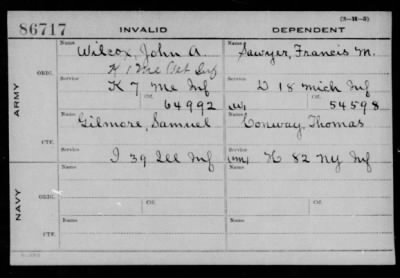 (3-14-5)
86717 INVALID DEPENDENT
ARMY
NAVY
ORIG.
Name
Wilcox, John A.
K 1 Me Vet Inf
Service
K 7 Me Inf
Ctf.
64992
Name
Sawyer, Francis M.
Service
D 18 Mich Inf
Ctf.
(W)
54598
CTF.
Name
Gilmore, Samuel
Service
I 39 Ill Inf
Name
Conway, Thomas
Service
H 82 NY Inf
ORIG.
Name
Service
Ctf.
Name
Service
Ctf.
CTF.
Name
Name